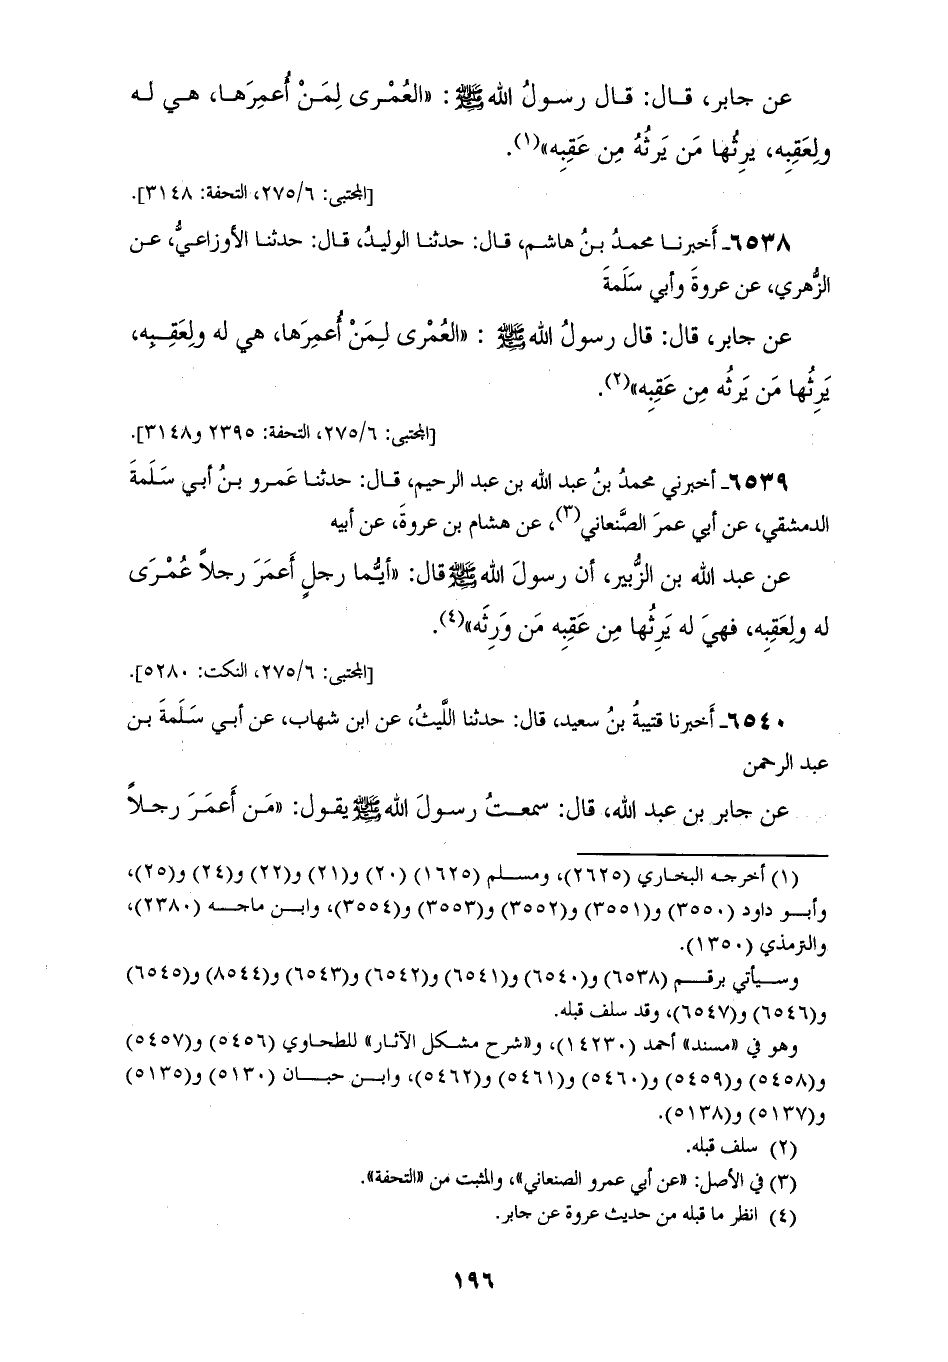 عن جابر، قال: قال رسولُ الله ﷺ: «العُمْرى لِمَنْ أُعمِرَها، هي له
ولِعَقِبِه، يرِثُها مَن يَرثُهُ مِن عَقِبِه»(١).
[المجتبى: ٢٧٥/٦، التحفة: ٣١٤٨].
٦٥٣٨ـ أَخبرنا محمدُ بنُ هاشم، قال: حدثنا الوليدُ، قال: حدثنا الأوزاعيُّ، عن
الزُّهري، عن عروةَ وأبي سَلَمةَ
عن جابر، قال: قال رسولُ الله ﷺ : «العُمْرى لِمَنْ أُعمِرَها، هي له ولِعَقِبِه،
يَرِثُها مَن يَرثُه مِن عَقِبِه»(٢).
[المجتبى: ٢٧٥/٦، التحفة: ٢٣٩٥ و٣١٤٨].
٦٥٣٩ـ أخبرني محمدُ بنُ عبد الله بن عبد الرحيم، قال: حدثنا عَمرو بنُ أبي سَلَمةَ
الدمشقي، عن أبي عمرَ الصَّنعاني(٣)، عن هشام بن عروةَ، عن أبيه
عن عبد الله بن الزُّبير، أن رسولَ الله ﷺ قال: «أيُّما رجلٍ أَعمَرَ رجلاً عُمْرَى
له ولِعَقِبه، فهيَ له يَرِثُها مِن عَقِبِه مَن وَرثَه»(٤).
[المجتبى: ٢٧٥/٦، النكت: ٥٢٨٠].
٦٥٤٠ـ أَخبرنا قتيبةُ بنُ سعيد، قال: حدثنا اللَّيثُ، عن ابن شهاب، عن أبي سَلَمةَ بن
عبد الرحمن
عن جابر بن عبد الله، قال: سمعتُ رسولَ الله ﷺ يقول: «مَن أَعمَرَ رجلاً
(١) أخرجه البخاري (٢٦٢٥)، ومسلم (١٦٢٥) (٢٠) و(٢١) و(٢٢) و(٢٤) و(٢٥)،
وأبو داود (٣٥٥٠) و(٣٥٥١) و(٣٥٥٢) و(٣٥٥٣) و(٣٥٥٤)، وابن ماجه (٢٣٨٠)،
والترمذي (١٣٥٠).
وسيأتي برقم (٦٥٣٨) و(٦٥٤٠) و(٦٥٤١) و(٦٥٤٢) و(٦٥٤٣) و(٨٥٤٤) و(٦٥٤٥)
و(٦٥٤٦) و(٦٥٤٧)، وقد سلف قبله.
وهو في «مسند» أحمد (١٤٢٣٠)، و«شرح مشكل الآثار» للطحاوي (٥٤٥٦) و(٥٤٥٧)
و(٥٤٥٨) و(٥٤٥٩) و(٥٤٦٠) و(٥٤٦١) و(٥٤٦٢)، وابن حبان (٥١٣٠) و(٥١٣٥)
و(٥١٣٧) و(٥١٣٨).
(٢) سلف قبله.
(٣) في الأصل: «عن أبي عمرو الصنعاني»، والمثبت من «التحفة».
(٤) انظر ما قبله من حديث عروة عن جابر.
١٩٦